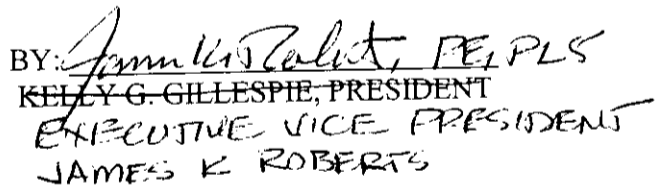 BY: James K. Roberts, PE, PLS
KELLY G. GILLESPIE, PRESIDENT
EXECUTIVE VICE PRESIDENT
JAMES K ROBERTS